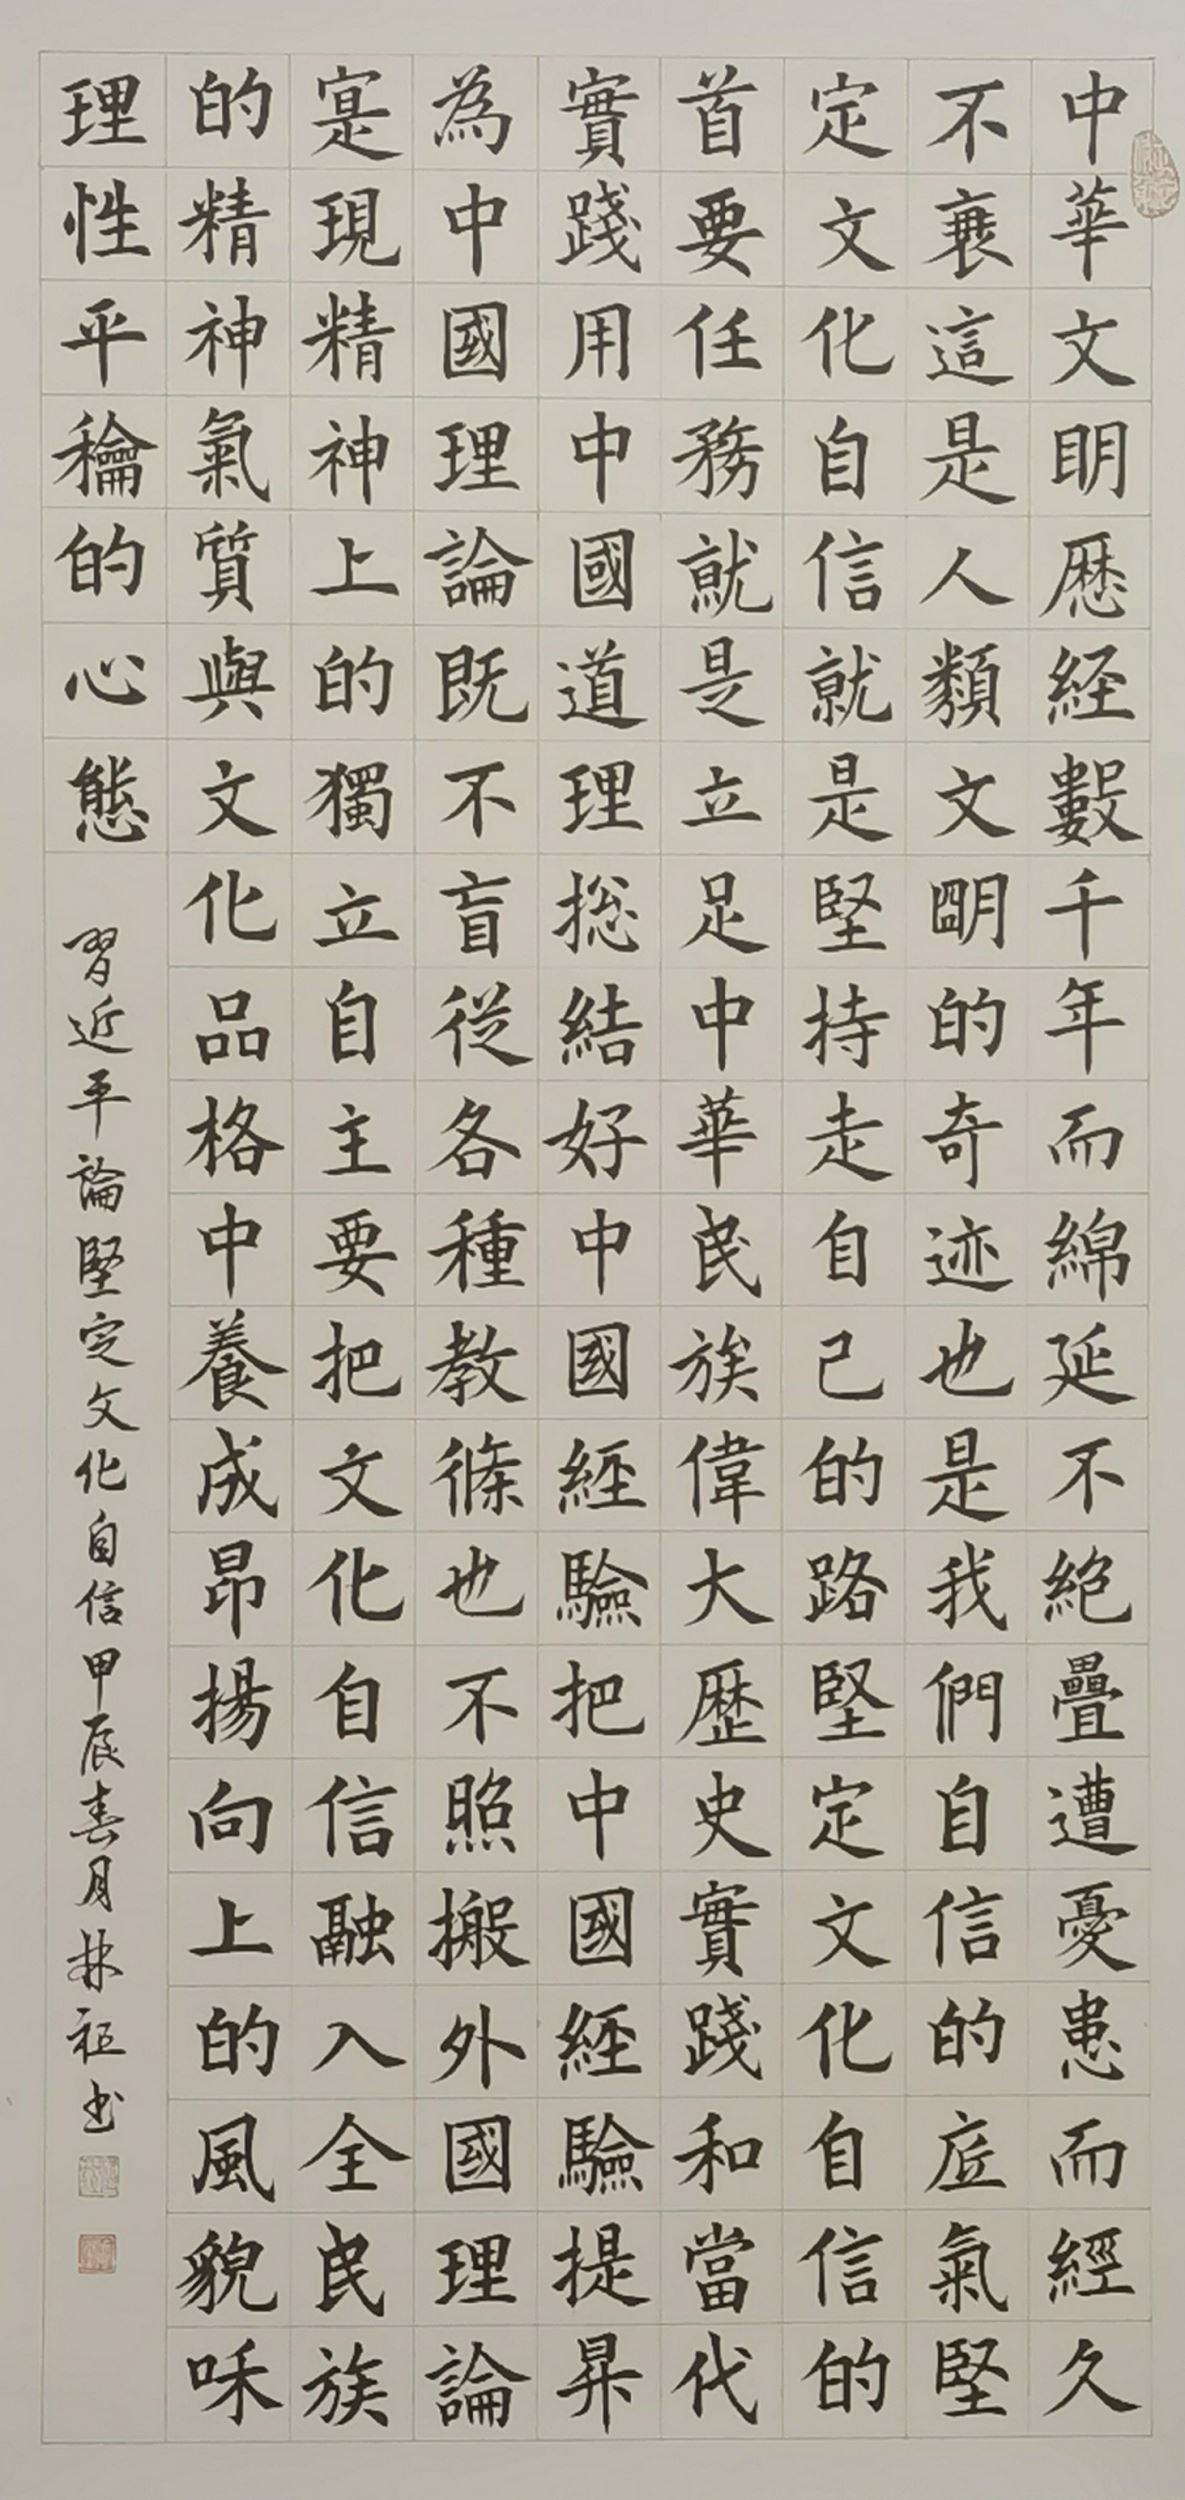 中華文明歷經數千年而綿延不絕疊遭憂患而經久
不衰這是人類文明的奇迹也是我們自信的底氣堅
定文化自信就是堅持走自己的路堅定文化自信的
首要任務就是立足中華民族偉大歷史實踐和當代
實踐用中國道理総結好中國經驗把中國經驗提昇
為中國理論既不盲從各種教條也不照搬外國理論
寔現精神上的獨立自主要把文化自信融入全民族
的精神氣質與文化品格中養成昂揚向上的風貌和
理性平龢的心態
習近平論堅定文化自信甲辰春月林祖书